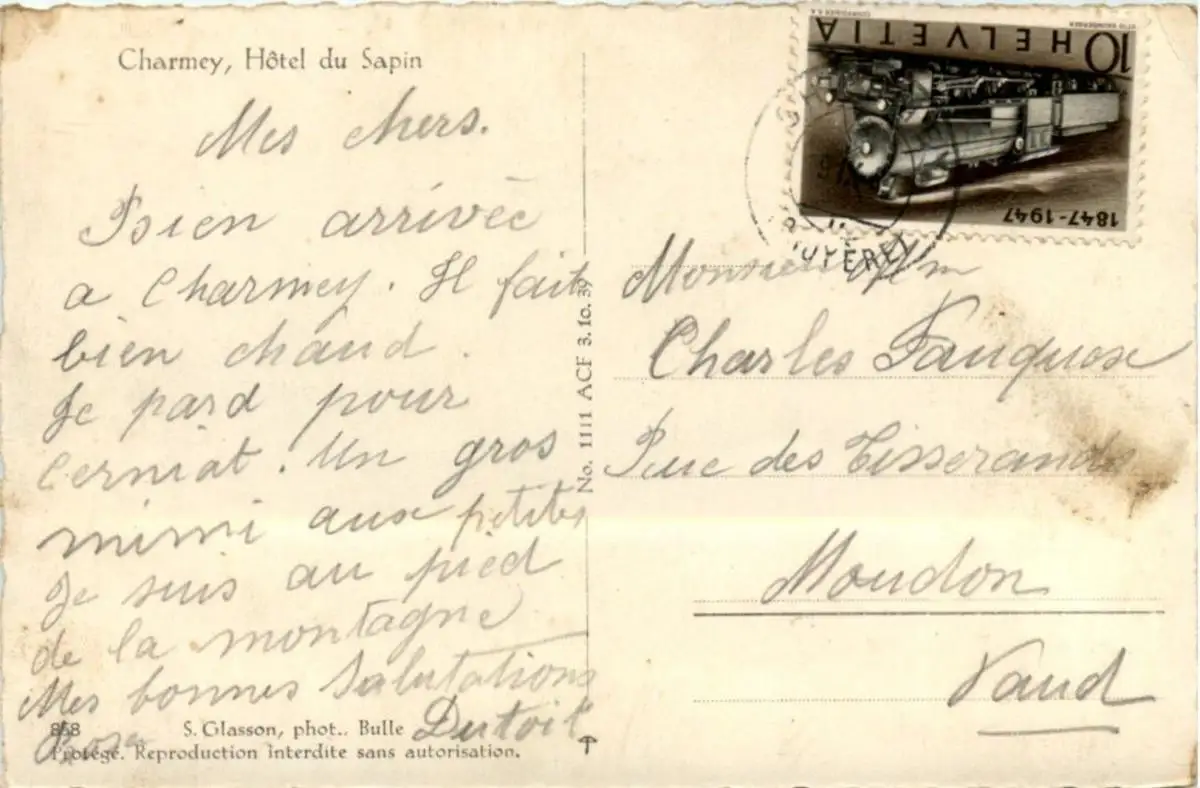 Charmey, Hôtel du Sapin
Mes chers.
Bien arrivée
a Charmey. Il fait
bien chaud.
Je pard pour
Cerniat. Un gros
mimi aux petites
Je suis au pied
de la montagne
Mes bonnes Salutations
Rosa Dutoit
868 S. Glasson, phot.. Bulle
Protégé. Reproduction interdite sans autorisation.
No. 1111 ACF 3. 10. 39
10 HELVETIA
1847-1947
Monsieur
Charles
Rue des Tisserands
Moudon
Vaud